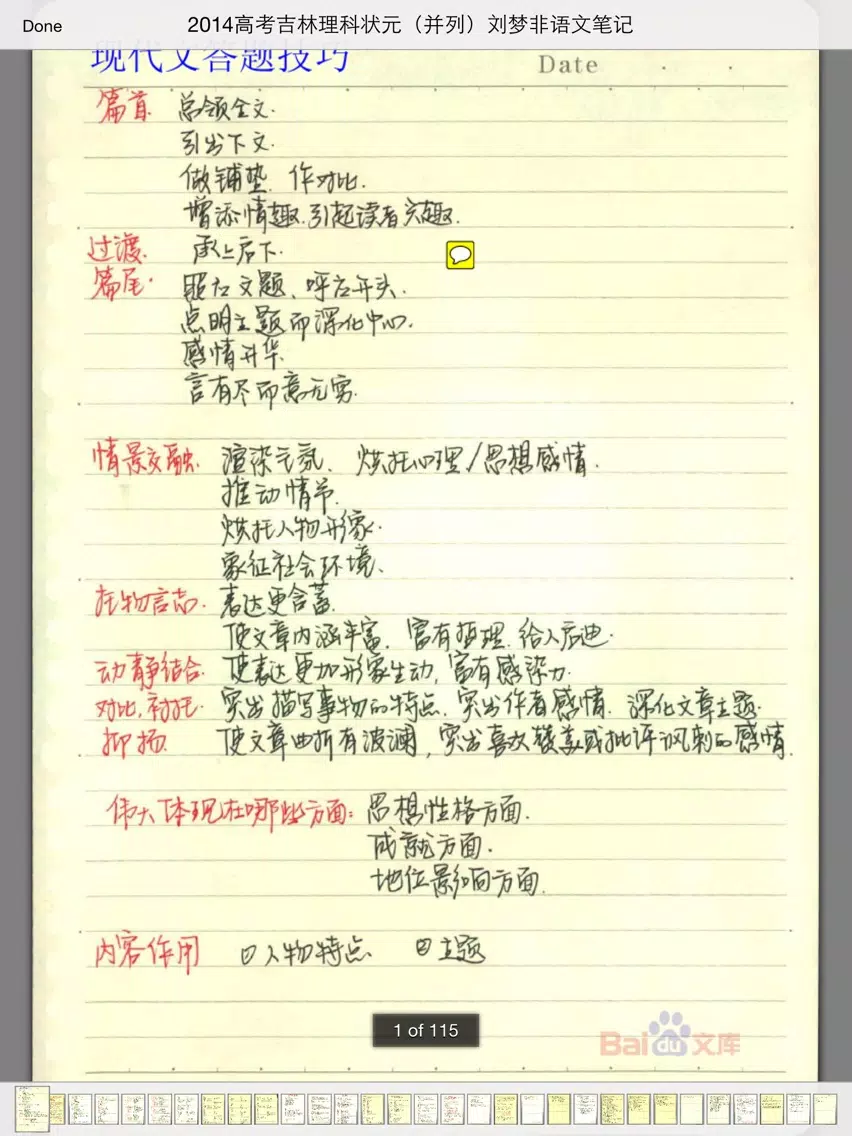 Done
2014高考吉林理科状元（并列）刘梦非语文笔记
现代文答题技巧
Date
篇首 总领全文.
引出下文.
做铺垫. 作对比.
增添情趣.引起读者兴趣.
过渡. 承上启下.
篇尾. 照应文题、呼应开头.
点明主题而深化中心.
感情升华.
言有尽而意无穷.
情景交融. 渲染气氛. 烘托心理/思想感情.
推动情节.
烘托人物形象.
象征社会环境、
托物言志. 表达更含蓄.
使文章内涵丰富. 富有哲理. 给人启迪.
动静结合. 使表达更加形象生动, 富有感染力.
对比,衬托. 突出描写事物的特点. 突出作者感情. 深化文章主题.
抑扬. 使文章曲折有波澜, 突出喜欢赞美或批评讽刺的感情.
伟大体现在哪些方面: 思想性格方面.
成就方面.
地位影响方面.
内容作用 ①人物特点 ②主题
1 of 115
Bai du 文库